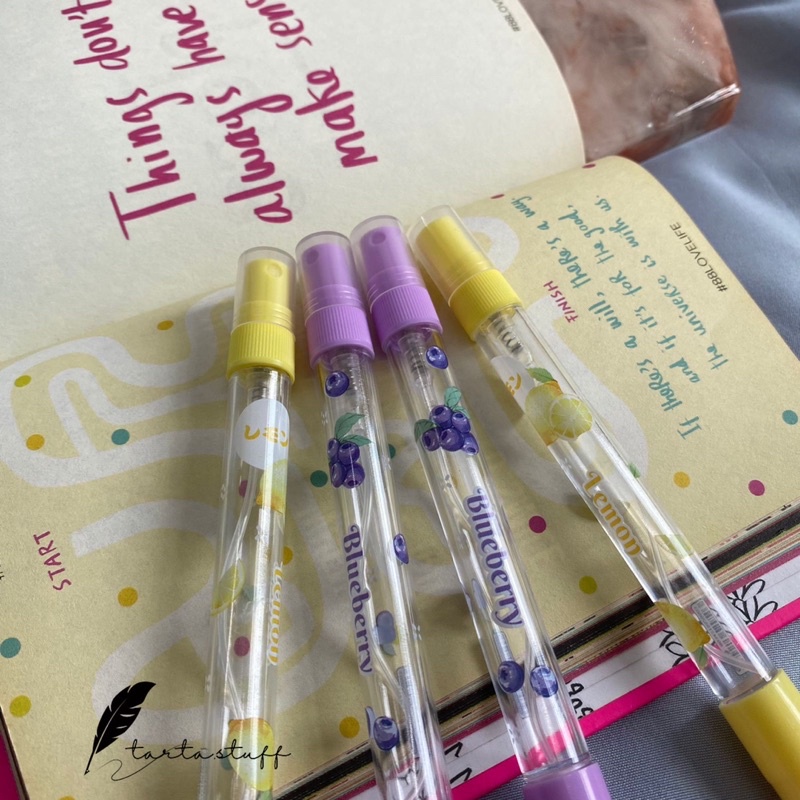 Things don't
always have
make sens
#88LOVELIFE
#88LOVELIFE
If there's a will, there's a way.
and if it's for the good,
the universe is with us.
FINISH
START
Lemon
Blueberry
Blueberry
Lemon
tarta.stuff